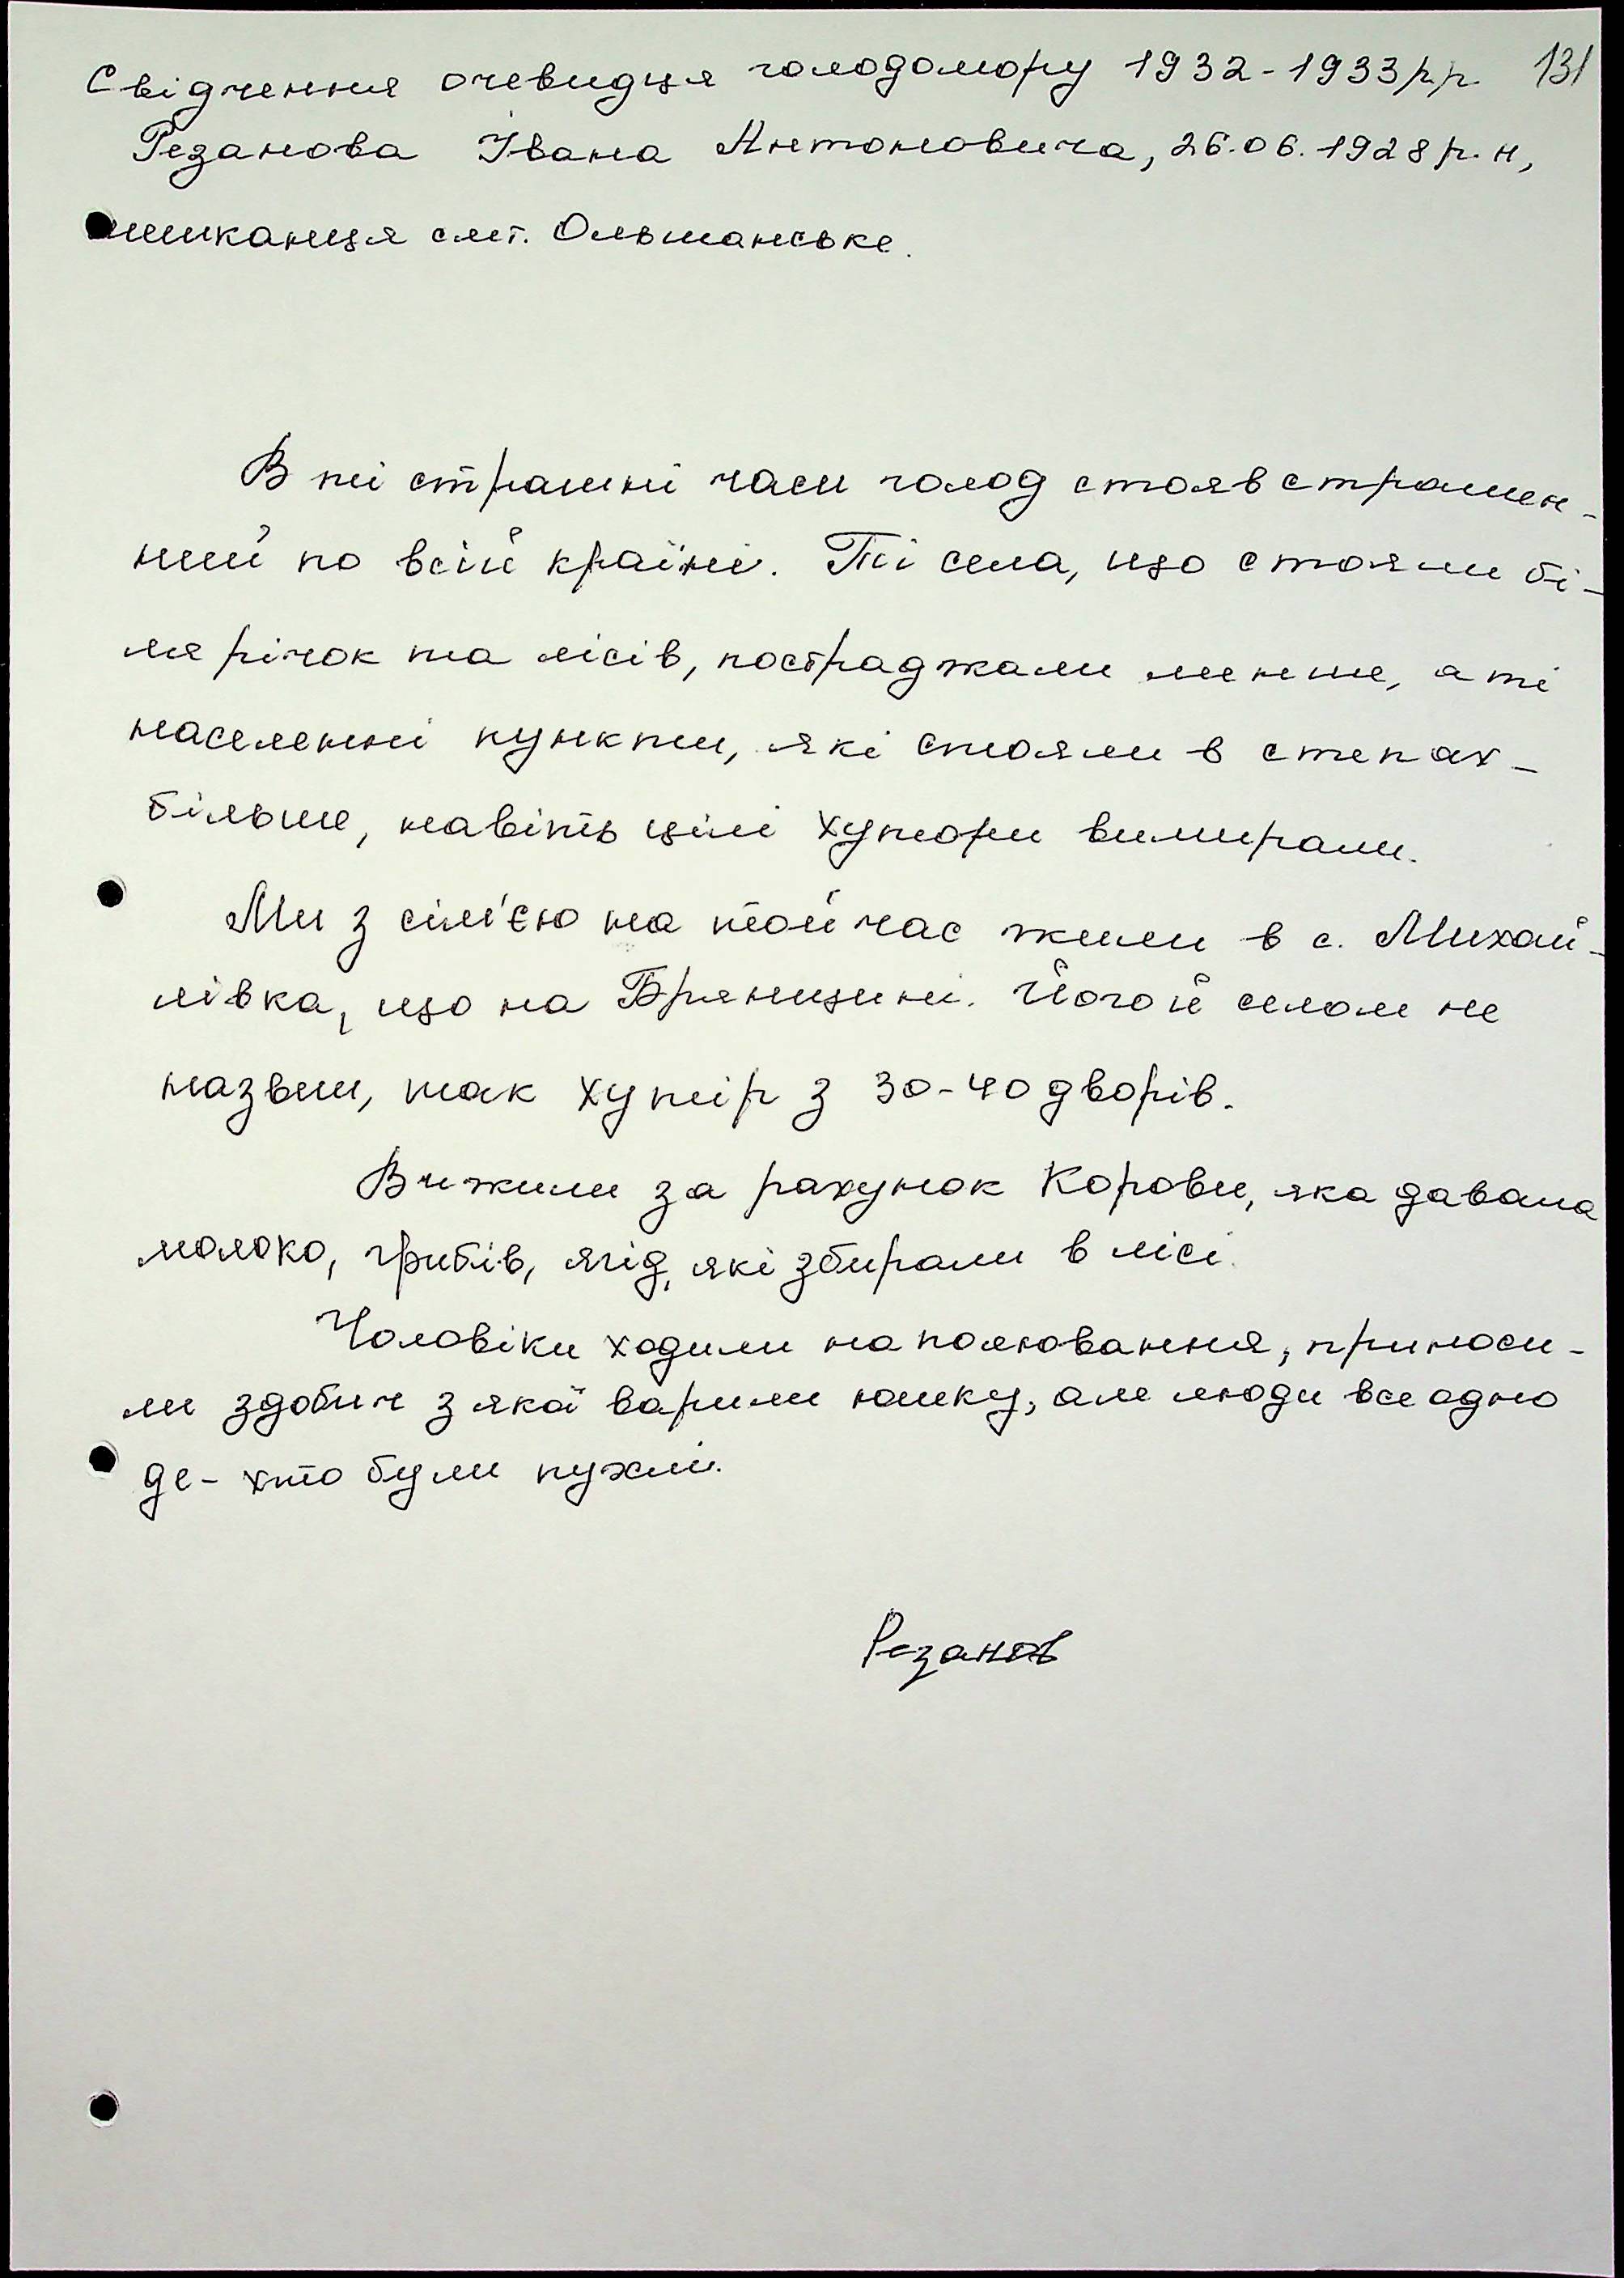 Свідчення очевидця голодомору 1932-1933 р.р. 131
Резанова Івана Антоновича, 26.06.1928 р.н,
мешканця смт. Ольшанське.
В ті страшні часи голод стояв страшен-
ний по всій країні. Ті села, що стояли бі-
ля річок та лісів, постраджали менше, а ті
населенні пункти, які стояли в степах -
більше, навіть цілі хутори вимирали.
Ми з сім'єю на той час жили в с. Михай-
лівка, що на Брянщині. Його й селом не
назвеш, так хутір з 30-40 дворів.
Вижили за рахунок Корови, яка давала
молоко, грибів, ягід, які збирали в лісі.
Чоловіки ходили на полювання, приноси-
ли здобич з якої варили юшку, але люди все одно
де-хто були пухлі.
Резанов